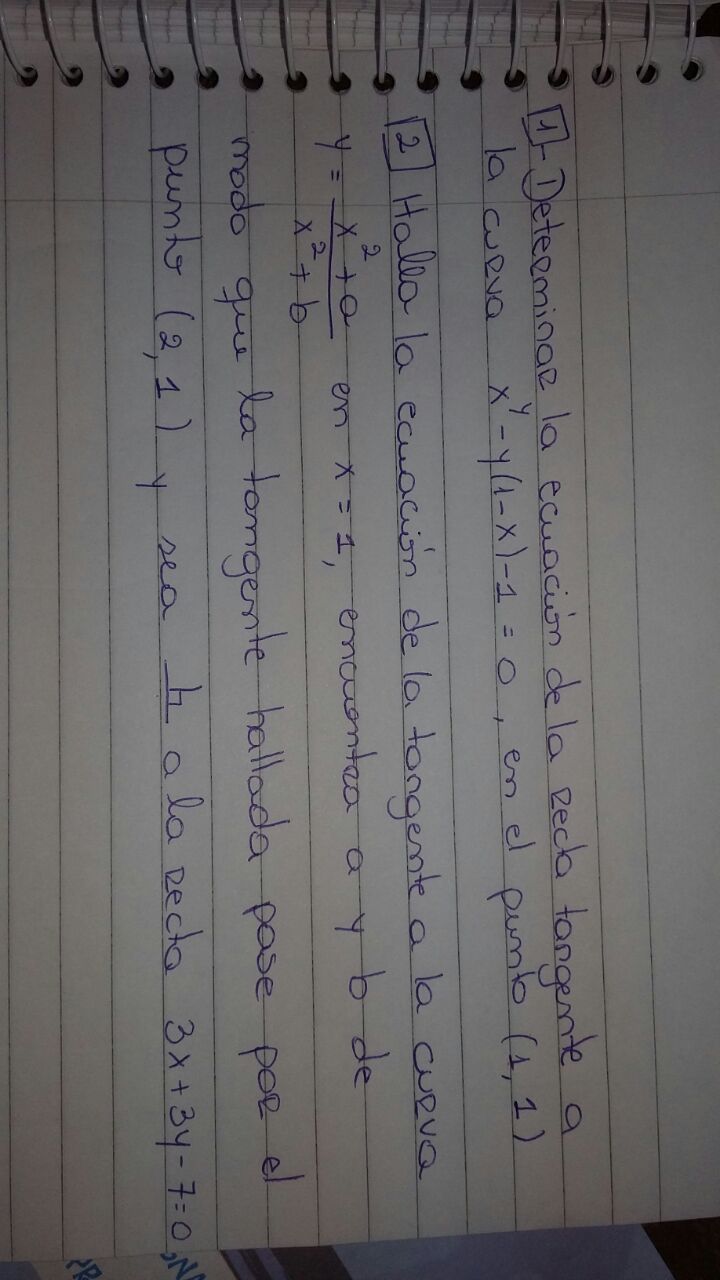 1- Determinar la ecuación de la recta tangente a
la curva x^y - y(1-x) - 1 = 0, en el punto (1,1)
2 Halla la ecuación de la tangente a la curva
y = \frac{x^2+a}{x^2+b} en x = 1, encuentra a y b de
modo que la tangente hallada pase por el
punto (2,1) y sea h a la recta 3x+3y-7=0